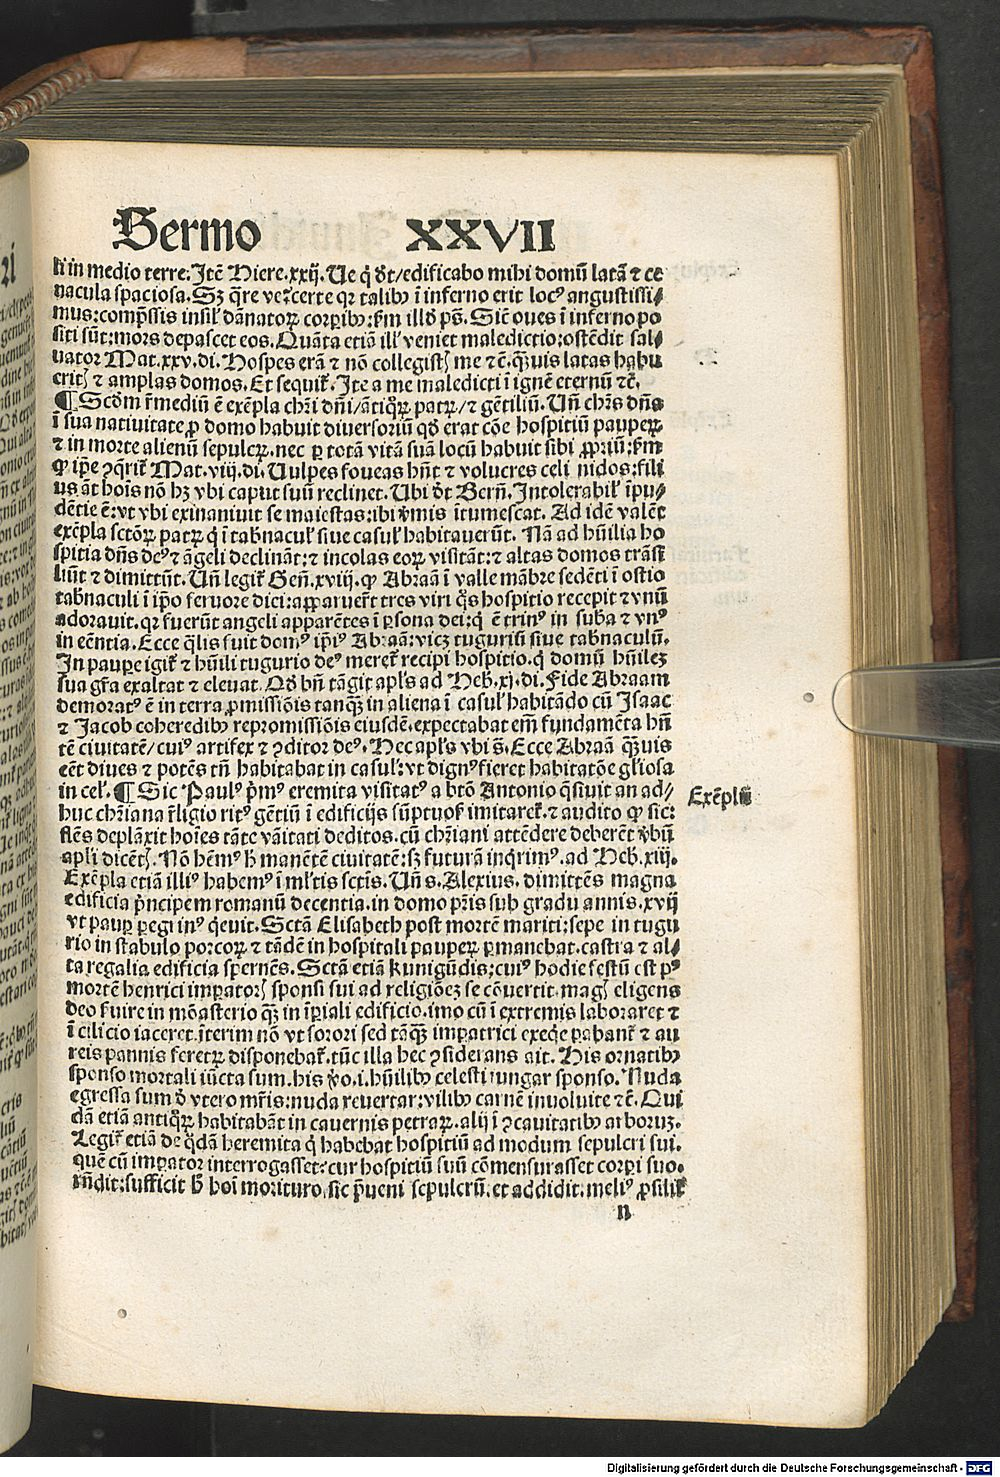 Sermo XXVII
li in medio terre. Itē Hiere.xxij. Ue q̇ dt/edificabo mihi domū latā ⁊ ce
nacula spaciosa. Sꝫ q̄re ve? certe qꝛ talibꝰ ī inferno erit locꝰ angustissi⸗
mus: comp̄ssis insil' dānatoꝝ corꝑibꝰ: ẜm illd̓ ps̄. Sic̄ oues ī inferno po
siti sūt: mors depascet eos. Quāta etiā ill' veniet maledictio: ostēdit sal⸗
uator Mat.xxv.di. Hospes erā ⁊ nō collegistꝭ me ⁊c̄. q̄ȝuis latas habu
eritꝭ ⁊ amplas domos. Et sequit̄. Ite a me maledicti ī ignē eternū ⁊c̄.
¶ Scd̓m r̄mediū ē exēpla chr̄i dn̄i/ātiq̄ꝝ patꝝ/⁊ gētiliū. Un̄ chr̄s dn̄s
ī sua natiuitate ꝓ domo habuit diuersoriū qd̓ erat cōe hospitiū pauꝑeꝝ
⁊ in morte alienū sepulcꝝ. nec ꝑ totā vitā suā locū habuit sibi ꝓpriū: ẜm
ꝙ ip̄e ꝯq̄rit̄ Mat.viij.di. Uulpes foueas hn̄t ⁊ volucres celi nidos: fili
us at̄ hoīs nō hꝫ vbi caput suū reclinet. Ubi dt Bern̄. Intolerabil' īpu⸗
dētie ē: vt vbi exinaniuit se maiestas: ibi v̓mis ītumescat. Ad idē valēt
exēpla sctōꝝ patꝝ q̇ ī tab̄nacul' siue casul' habitauerūt. Nā ad hūilia ho
spitia dn̄s deꝰ ⁊ āgeli declināt: ⁊ incolas eoꝝ visitāt: ⁊ altas domos trāsi
liūt ⁊ dimittūt. Un̄ legit̄ Gen̄.xviij. ꝙ Abraā ī valle mābre sedēti ī ostio
tab̄naculi ī ip̄o feruore diei: apparuer̄t tres viri q̇s hospitio recepit ⁊ vnū
adorauit. qꝛ fuerūt angeli apparētes ī ꝑsona dei: q̇ ē trinꝰ in suba ⁊ vnꝰ
in eēntia. Ecce q̄lis fuit domꝰ ip̄iꝰ Abraā: vicꝫ tuguriū siue tab̄naculū.
In pauꝑe igit̄ ⁊ hūili tugurio deꝰ meret̄ recipi hospitio. q̇ domū hūilez
sua gr̄a exaltat ⁊ eleuat. Qd̓ bn̄ tāgit apl's ad Heb̄.xj.di. Fide Abraam
demoratꝰ ē in terra ꝓmissiōis tanq̄ȝ in aliena ī casul' habitādo cū Isaac
⁊ Jacob coheredibꝰ repromissiōis eiusdē. expectabat em̄ fundamēta hn̄
tē ciuitatē/cuiꝰ artifex ⁊ ꝯditor deꝰ. Hec apl's vbi s̄. Ecce Abraā q̄ȝuis
eēt diues ⁊ potēs tn̄ habitabat in casul': vt dignꝰ fieret habitatōe gl'iosa
in cel'. ¶ Sic Paulꝰ p̄mꝰ eremita visitatꝰ a btō Antonio q̄siuit an ad⸗
huc chr̄iana r̄ligio ritꝰ gētiū ī edificijs sūptuos̄ imitaret̄. ⁊ audito ꝙ sic:
flēs deplāxit hoīes tāte vāitati deditos. cū chr̄iani attēdere deberēt v̓bū
apl'i dicētꝭ. Nō hēmꝰ h̄ manētē ciuitatē: sꝫ futurā inq̇rimꝰ. ad Heb̄.xiij.
Exēpla etiā illiꝰ habemꝰ ī ml'tis sctīs. Un̄ s. Alexius. dimittēs magna
edificia p̄ncipem romanū decentia. in domo pr̄is sub gradu annis.xvij
vt pauꝑ ꝑeginꝰ q̇euit. Sctā Elisabeth post mortē mariti: sepe in tugu
rio in stabulo porcoꝝ ⁊ tādē in hospitali pauꝑeꝝ ꝑmanebat. castra ⁊ al⸗
ta regalia edificia spernēs. Sctā etiā kunigūdis: cuiꝰ hodie festū est pꝰ
mortē henrici imꝑatorꝭ sponsi sui ad religiōez se cōuertit. magꝭ eligens
deo ẜuire in mōasterio q̄ȝ in īꝑiali edificio. imo cū ī extremis laboraret ⁊
ī cilicio iaceret. īterim nō vt sorori sed tāq̄ȝ imꝑatrici exeq̄e ꝑabant̄ ⁊ au
reis pannis feretꝝ disponebat̄. tūc illa hec ꝯsiderans ait. His ornatibꝰ
sponso mortali iūcta sum. his v̓o.i. hūilibꝰ celesti iungar sponso. Nuda
egressa sum d̓ vtero mr̄is: nuda reuertar: vilibꝰ carnē inuoluite ⁊c̄. Qui
dā etiā antiq̄ꝝ habitabāt in cauernis petraꝝ. alij ī ꝯcauitatibꝰ arboruz.
Legit̄ etiā de q̇dā heremita q̇ habebat hospitiū ad modum sepulcri sui.
quē cū imꝑator interrogasset: cur hospitiū suū cōmensurasset corꝑi suo.
rn̄dit: sufficit h̄ hoī morituro. sic p̄ueni sepulcrū. et addidit. meliꝰ ꝓsilit̄
Exēplū
n
Digitalisierung gefördert durch die Deutsche Forschungsgemeinschaft - DFG